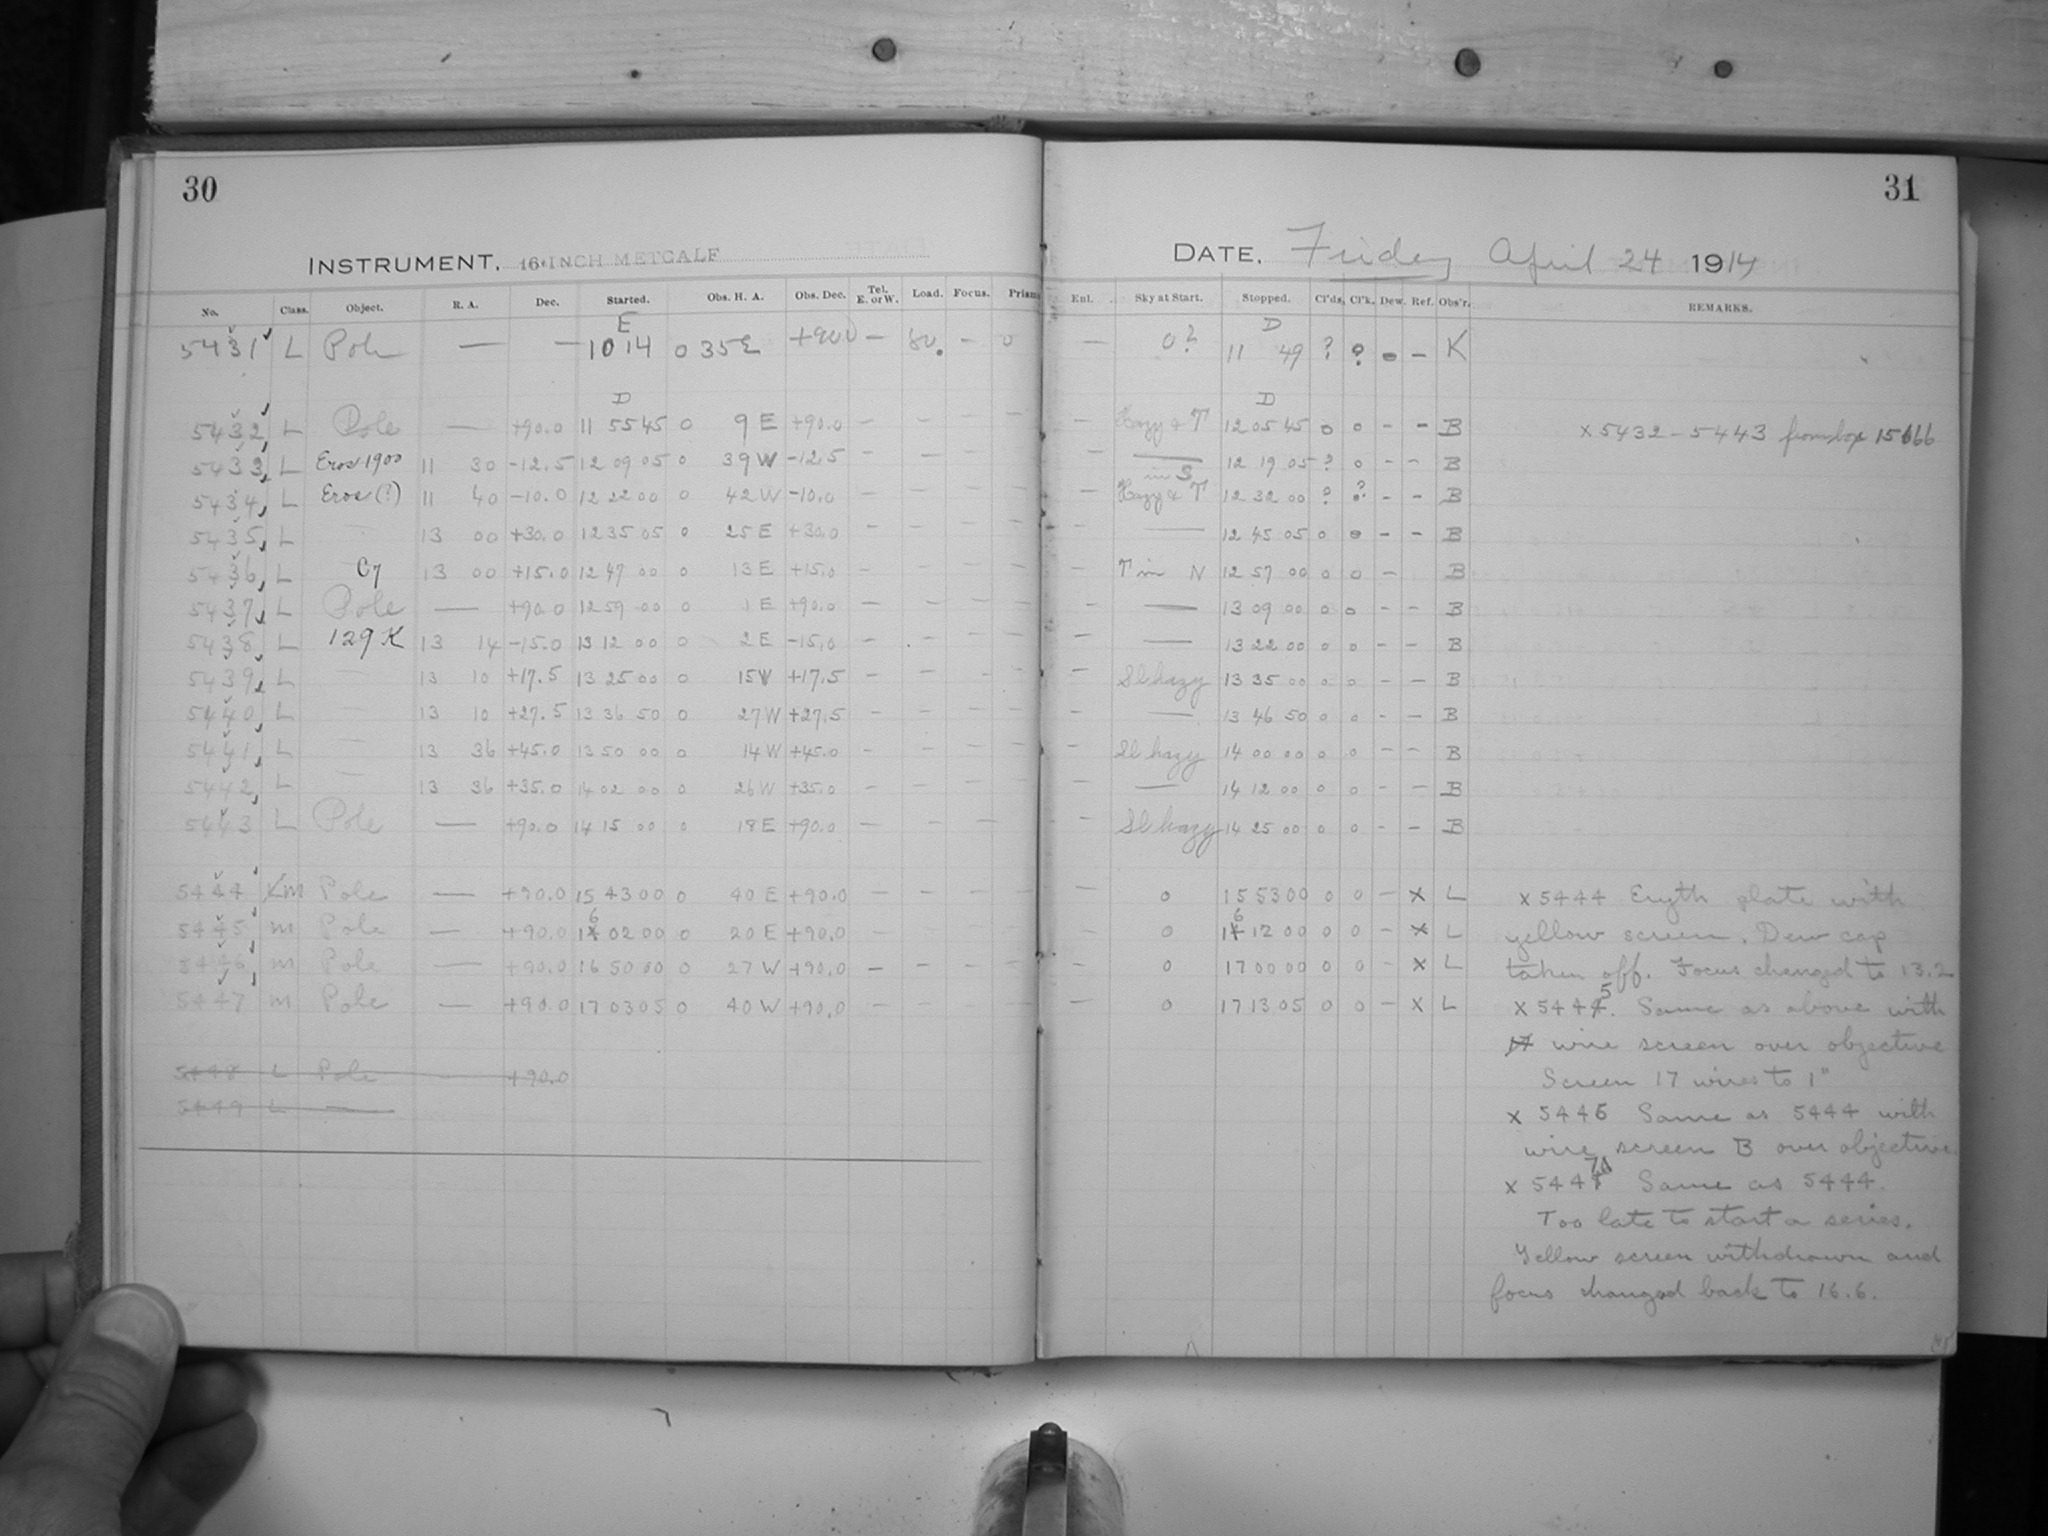 30
INSTRUMENT, 16-INCH METCALF
No. Class. Object. R. A. Dec. Started. Obs. H. A. Obs. Dec. Tel. E. or W. Load. Focus. Prism
E
5431 L Pole — — 10 14 0 35 E +90.0 — — 0
D
5432 L Pole — +90.0 11 55 45 0 9 E +90.0 — — — —
5433 L Eros 1900 11 30 -12.5 12 09 05 0 39 W -12.5 — — — —
5434 L Eros (?) 11 40 -10.0 12 22 00 0 42 W -10.0 — — — —
5435 L — 13 00 +30.0 12 35 05 0 25 E +30.0 — — — —
5436 L C7 13 00 +15.0 12 47 00 0 13 E +15.0 — — — —
5437 L Pole — +90.0 12 59 00 0 1 E +90.0 — — — —
5438 L 129 K 13 14 -15.0 13 12 00 0 2 E -15.0 — — — —
5439 L — 13 10 +17.5 13 25 00 0 15 W +17.5 — — — —
5440 L — 13 10 +27.5 13 36 50 0 27 W +27.5 — — — —
5441 L — 13 36 +45.0 13 50 00 0 14 W +45.0 — — — —
5442 L — 13 36 +35.0 14 02 00 0 26 W +35.0 — — — —
5443 L Pole — +90.0 14 15 00 0 18 E +90.0 — — — —
5444 L m Pole — +90.0 15 43 00 0 40 E +90.0 — — — —
5445 m Pole — +90.0 16 02 00 0 20 E +90.0 — — — —
5446 m Pole — +90.0 16 50 00 0 27 W +90.0 — — — —
5447 m Pole — +90.0 17 03 05 0 40 W +90.0 — — — —
5448 L Pole — +90.0
5449 L —
31
DATE, Friday April 24 1914
Enl. Sky at Start. Stopped. Cl'ds. Cl'k. Dew. Ref. Obs'r. REMARKS.
D
— 0? 11 49 ? ? — K
D
— Hazy & T 12 05 45 0 0 - - B x 5432 - 5443 from box 15666
— 12 19 05 ? 0 - - B
in S
— Hazy & T 12 32 00 ? ? - - B
— — 12 45 05 0 0 - - B
— T in N 12 57 00 0 0 - B
— — 13 09 00 0 0 - - B
— — 13 22 00 0 0 - - B
— Sl hazy 13 35 00 0 0 - - B
— — 13 46 50 0 0 - - B
— Sl hazy 14 00 00 0 0 - - B
— — 14 12 00 0 0 - - B
— Sl hazy 14 25 00 0 0 - - B
— 0 15 53 00 0 0 - x L
— 0 16 12 00 0 0 - x L
— 0 17 00 00 0 0 - x L
— 0 17 13 05 0 0 - x L
x 5444 Eryth plate with
yellow screen. Dew cap
taken off. Focus changed to 13.2
x 5445. Same as above with
17 wire screen over objective
Screen 17 wires to 1"
x 5446 Same as 5444 with
wire screen B over objective
x 5447 Same as 5444.
Too late to start a series.
Yellow screen withdrawn and
focus changed back to 16.6.